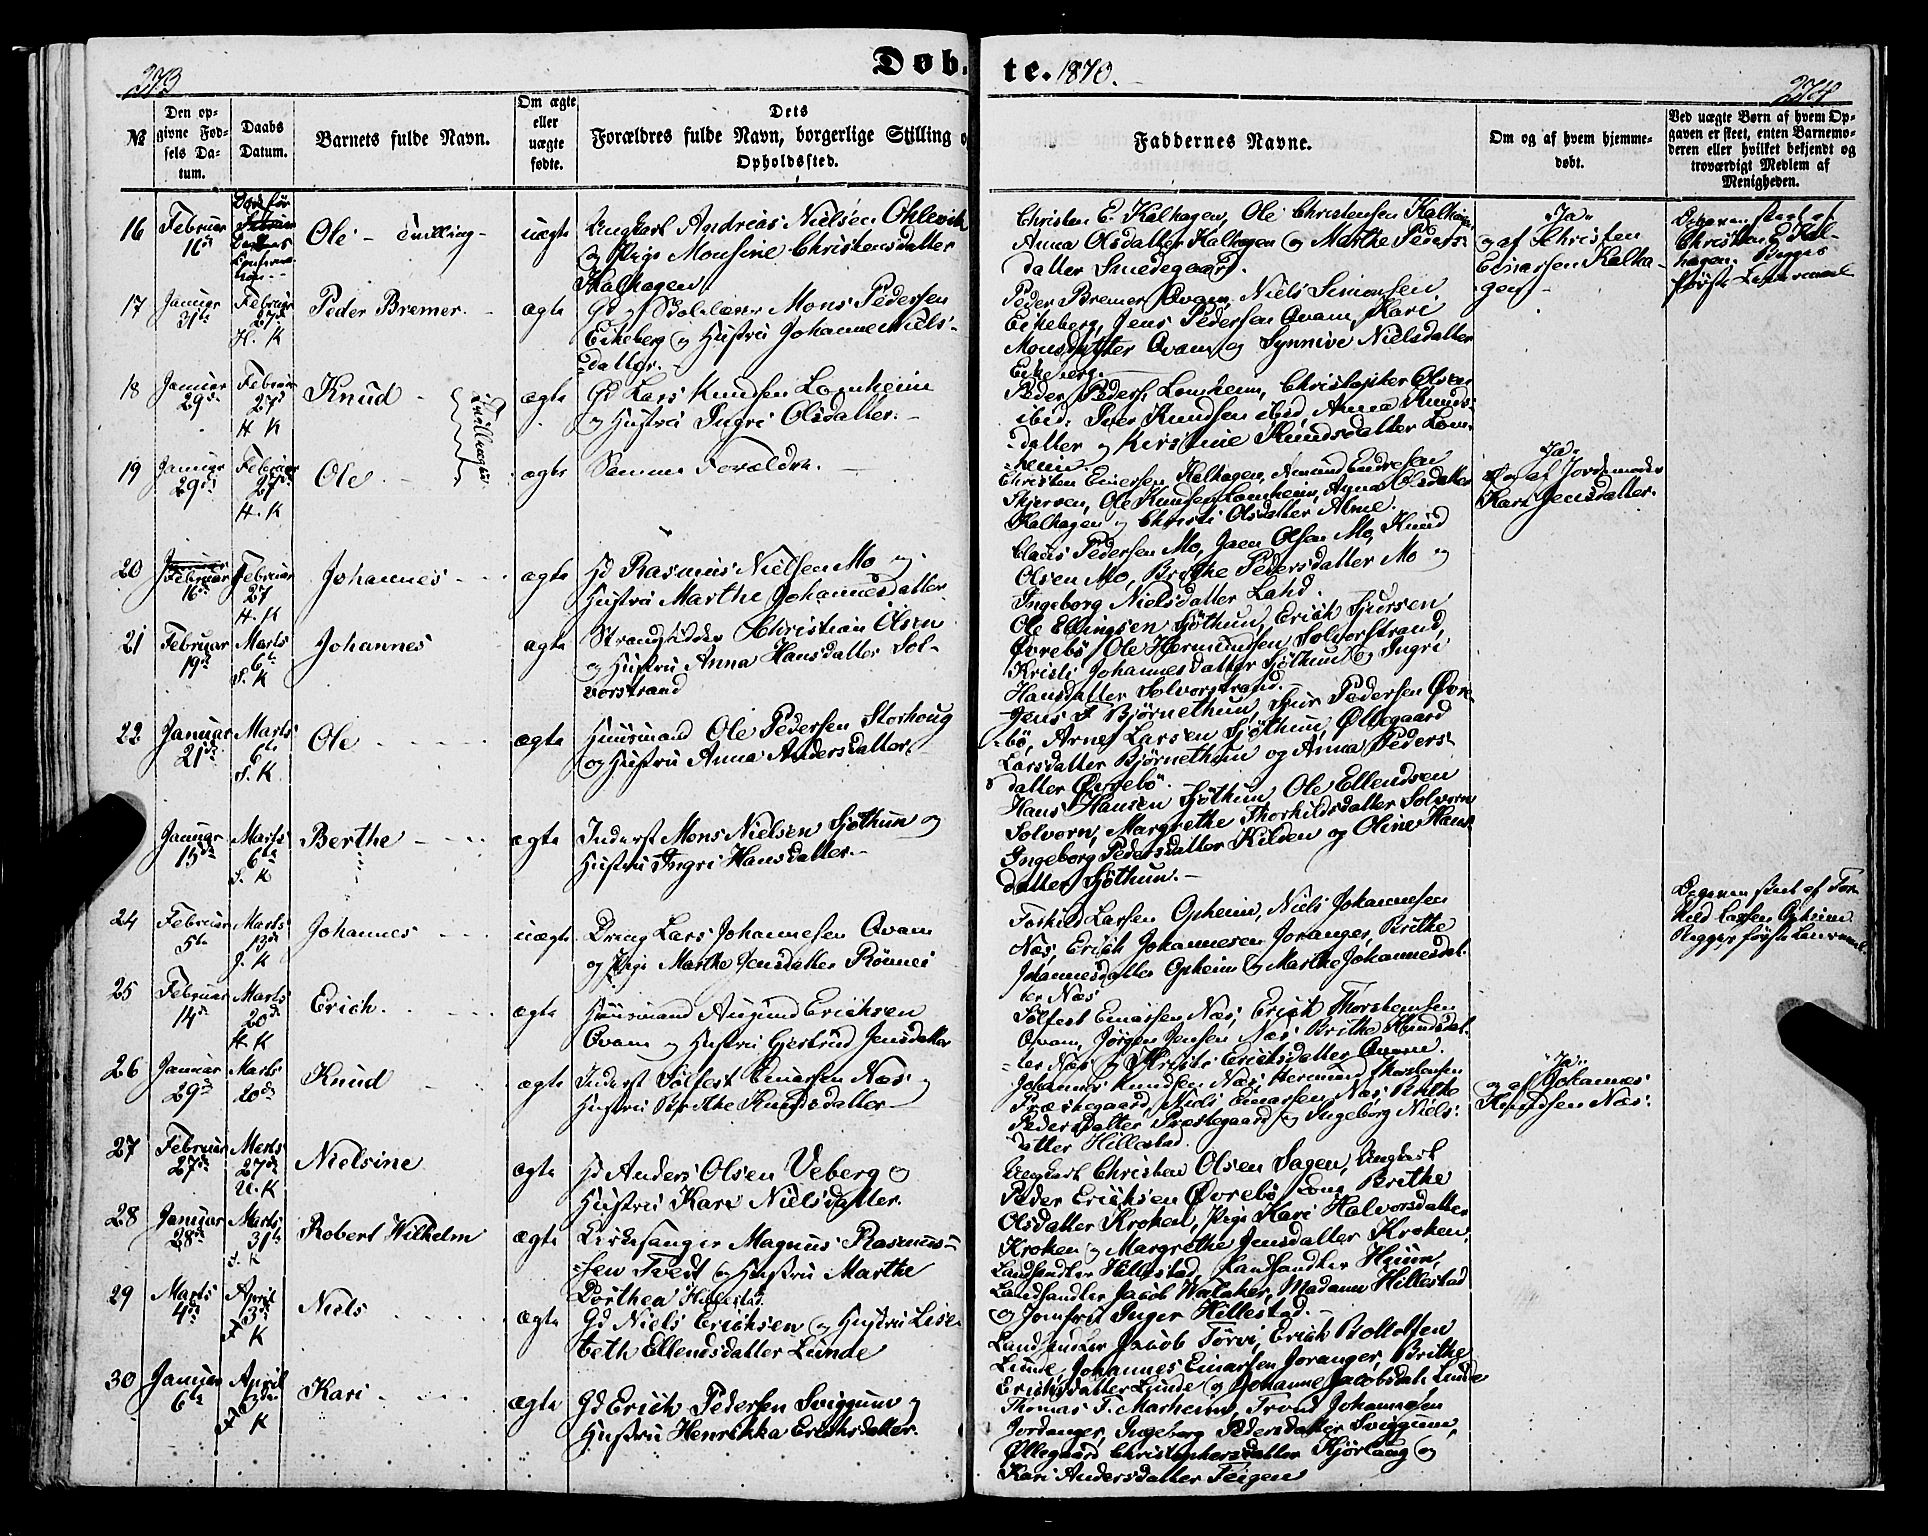 273
Døb-
te. 1870.
274
№
Den op-
givne Fød-
sels Da-
tum.
Daabs
Datum.
Barnets fulde Navn.
Om ægte
eller
uægte
fødte.
Dets
Forældres fulde Navn, borgerlige Stilling o
Opholdssted.
Faddernes Navne.
Om og af hvem hjemme-
døbt.
Ved uægte Børn af hvem Op-
gaven er skeet, enten Barnemo-
deren eller hvilket bekjendt og
troværdigt Medlem af
Menigheden.
16
Februar
16de
Døde før
Ole - Tvilling -
uægte
Ungkarl Andreas Nielsen Ohlevik
og Pige Monsine Christensdatter
Kalhagen.
Christen E. Kalhagen, Ole Christensen Kalhagen
Anna Olsdatter Kalhagen og Marthe Peders-
datter Smedegaard.
"Ja"
og af Christen
Einarsen Kalha-
gen
Opgaven skeet af
Christen E. Kal-
hagen. Begges
første Leiermaal
17
Januar
31te
Februar
27de
H. K
Peder Bremer.
ægte
Gd og Skolelærer Mons Pedersen
Eikeberg og Hustru Johanne Niels-
datter.
Peder Bremer Qvam, Niels Simonsen
Eikeberg, Jens Pedersen Qvam, Kari
Monsdatter Qvam og Synnive Nielsdatter
Eikeberg.
18
Januar
29de
Februar
27d
H K
Knud
Tvillinger
ægte
Gd Lars Knudsen Lomheim
og Hustru Ingri Olsdatter.
Peder Peders. Lomheim, Christopher Olsen
ibid. Iver Knudsen ibid Anna Knuds-
datter og Kirstine Knudsdatter Lom-
heim.
19
Januar
29de
Februar
27de
H. K
Ole
ægte
Samme Forældre.
Christen Einersen Kalhagen, Amund Endresen
Skjersen, Ole Knudsen Lomheim, Anna Olsdatter
Kalhagen og Christi Olsdatter Alme.
"Ja"
og af Jordemoder
Kari Jensdatter.
20
Januar
Februar
16de
Februar
27
H. K
Johannes
ægte
Gd Rasmus Nielsen Mo og
Hustru Marthe Johannesdatter
Claus Pedersen Mo, Jaen Olsen Mo, Knud
Olsen Mo, Brithe Pedersdatter Mo og
Ingeborg Nielsdatter Lahd.
21
Februar
19de
Marts
6te
S. K
Johannes
ægte
Strandsidder Christian Olsen
og Hustru Anna Hansdatter Sol-
vorstrand
Ole Ellingsen Sjøthun, Erich Sjursen
Øvrebø, Ole Hermundsen Solvorstrand,
Kristi Johannesdatter Sjøthun og Ingri
Hansdatter Solvorstrand.
22
Januar
21de
Marts
6te
S. K
Ole
ægte
Huusmand Ole Pedersen Storhoug
og Hustru Anna Andersdatter
Jens F Bjørnethun, Sjur Pedersen Øvre-
bø, Arne Larsen Sjøthun, Øllegaard
Larsdatter Bjørnethun og Anna Peders-
datter Øvrebø.
Januar
15de
Marts
6te
S. K
Berthe
ægte
Inderst Mons Nielsen Sjøthun og
Hustru Ingri Hansdatter.
Hans Hansen Sjøthun Ole Ellendsen
Solvorn, Margrethe Thorkildsdatter Solvorn
Ingeborg Pedersdatter Kilden og Oline Hans-
datter Sjøthun.
24
Februar
5te
Marts
13de
J. K
Johannes
uægte
Dreng Lars Johannesen Qvam
og Pige Marthe Jensdatter Rønnei
Torkild Larsen Opheim, Niels Johannesen
Næs, Erich Johannesen Joranger, Brithe
Johannesdatter Opheim og Marthe Johannesdat-
ter Næs
Opgaven skeet af Tor-
kild Larsen Opheim
Begges første Leiermaal
25
Februar
14de
Marts
20de
H. K
Erich.
ægte
Huusmand Augund Erichsen
Qvam og Hustru Gjertrud Jensdatter
Sølfest Einarsen Næs, Erich Thorstensen
Qvam, Jørgen Jensen Næs Brithe Knudsdat-
ter Næs og Kristi Erichsdatter Qvam.
26
Januar
29de
Marts
20de
Knud
ægte
Inderst Sølfest Einarsen Næs og
Hustru Brithe Knudsdatter
Johannes Knudsen Næs, Hermund Thorstensen
Præstegaard, Niels Einarsen Næs, Brithe
Pedersdatter Præstegaard og Ingeborg Niels-
datter Hillestad.
"Ja"
og af Johannes
Knudsen Næs.
27
Februar
27de
Marts
27de
U. K
Nielsine
ægte
Gd Anders Olsen Veberg og
Hustru Kari Nielsdatter.
Ungkarl Christen Olsen Sagen, Ungkarl
Peder Erichsen Øvrebø Kone Brithe
Olsdatter Kroken, Pige Kari Halvorsdatter
Kroken og Margrethe Jensdatter Kroken.
28
Januar
28de
Marts
31te
S. K
Robert Wilhelm
ægte
Kirkesanger Magnus Rasmus-
sen Tvedt og Hustru Marthe
Dorthea Hillestad.
Landhandler Hillestad, Landhandler Heum,
Landhandler Jacob Walaker, Madame Hillestad
og Jomfru Inger Hillestad.
29
Marts
4de
April
3de
F K
Niels
ægte
Gd Niels Erichsen og Hustru Lise-
beth Ellendsdatter Lunde
Landhandler Jacob Tørvi, Erich Boltolfsen
Lunde, Johannes Einarsen Joranger, Brithe
Erichsdatter Lunde og Johanne Jacobsdatr Lunde
30
Januar
6te
April
3die
F K
Kari
ægte
Gd Erich Pedersen Sviggum og
Hustru Henrikka Erichsdatter.
Thomas T. Marheim, Trond Johannesen
Jordanger, Ingeborg Pedersdatter Sviggum,
Øllegaard Christophersdatter Kjørlaug og
Kari Andersdatter Feigen